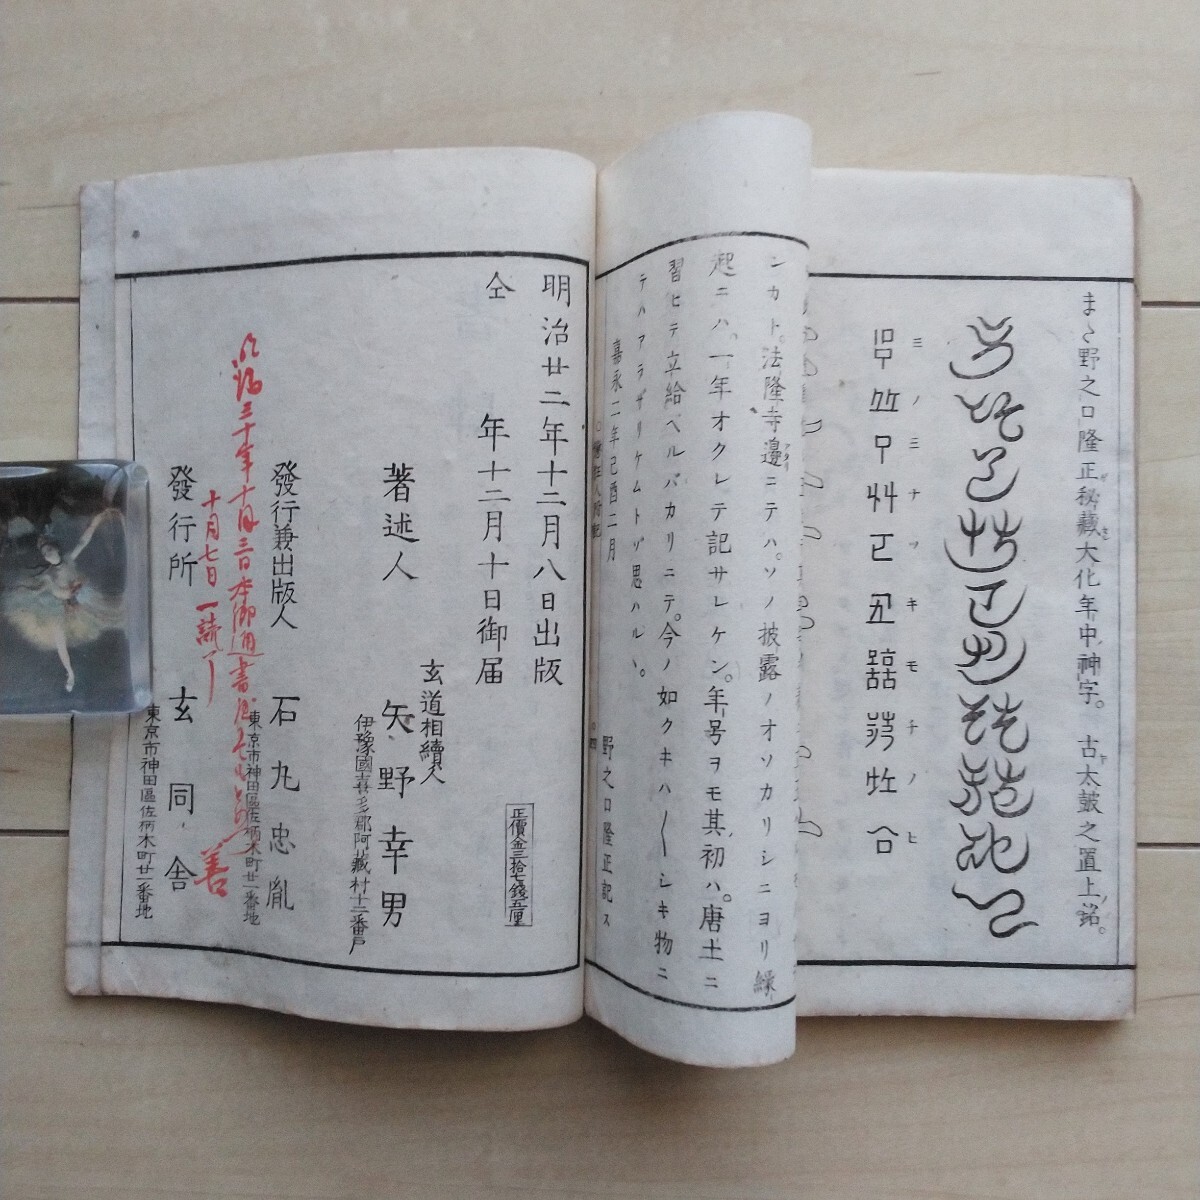 まゝ野之口隆正秘藏大化年中神字。 古太鼓之置上銘。
ミノミナツキモチノヒ
シカト。法隆寺邊ニテハ。ソノ披露ノオソカリシニヨリ縁
起ニハ。一年オクレテ記サレケン。年号ヲモ其初ハ。唐土ニ
習ヒテ立給ヘルバカリニテ。今ノ如クキハ〱シキ物ニ
テハアラザリケムトゾ思ハルヽ。
嘉永二年己酉二月 野之口隆正記ス
明治廿二年十二月八日出版
仝 年十二月十日御届
正價金三拾七錢五厘
玄道相續人
著述人 矢野幸男
伊豫國喜多郡阿藏村十二番戸
發行兼出版人 石丸忠胤
東京市神田區佐柄木町廿一番地
明治三十年十月三日本郷通書
十月七日一読了 善
發行所 玄同舎
東京市神田區佐柄木町廿一番地